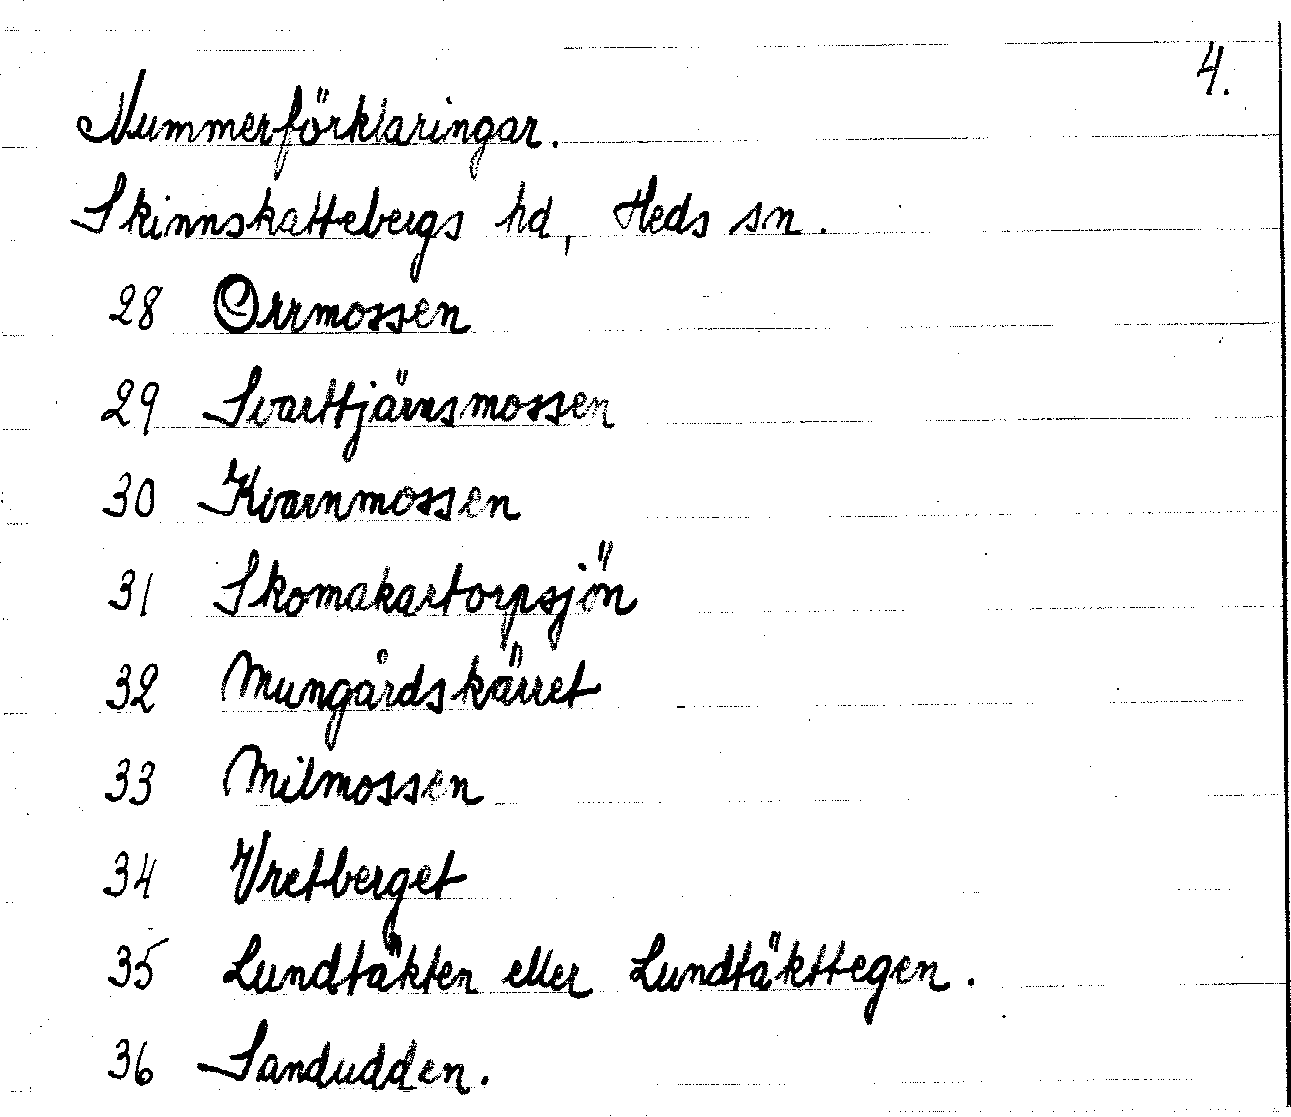 4.
Nummerförklaringar.
Skinnskattebergs hd, Heds sn.
28 Orrmossen
29 Svarttjärnsmossen
30 Kvarnmossen
31 Skomakartorpsjön
32 Mungårdskärret
33 Milmossen
34 Vretberget
35 Lundtäkten eller Lundtäkttegen.
36 Sandudden.